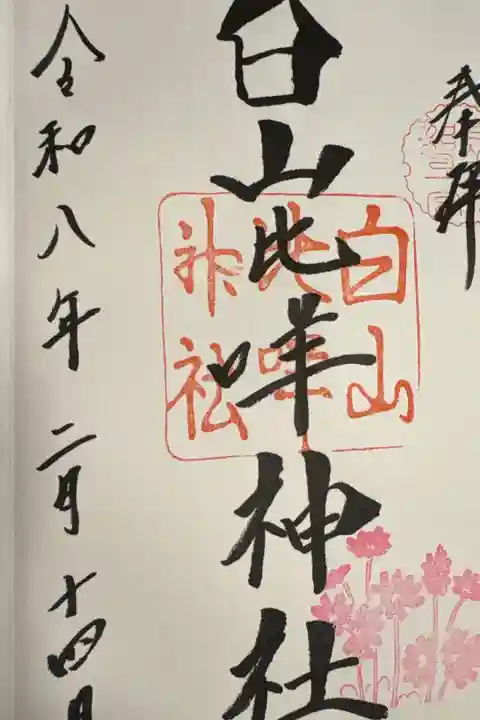 奉拝
白山比咩神社
白山比咩神社
令和八年 二月 十四日